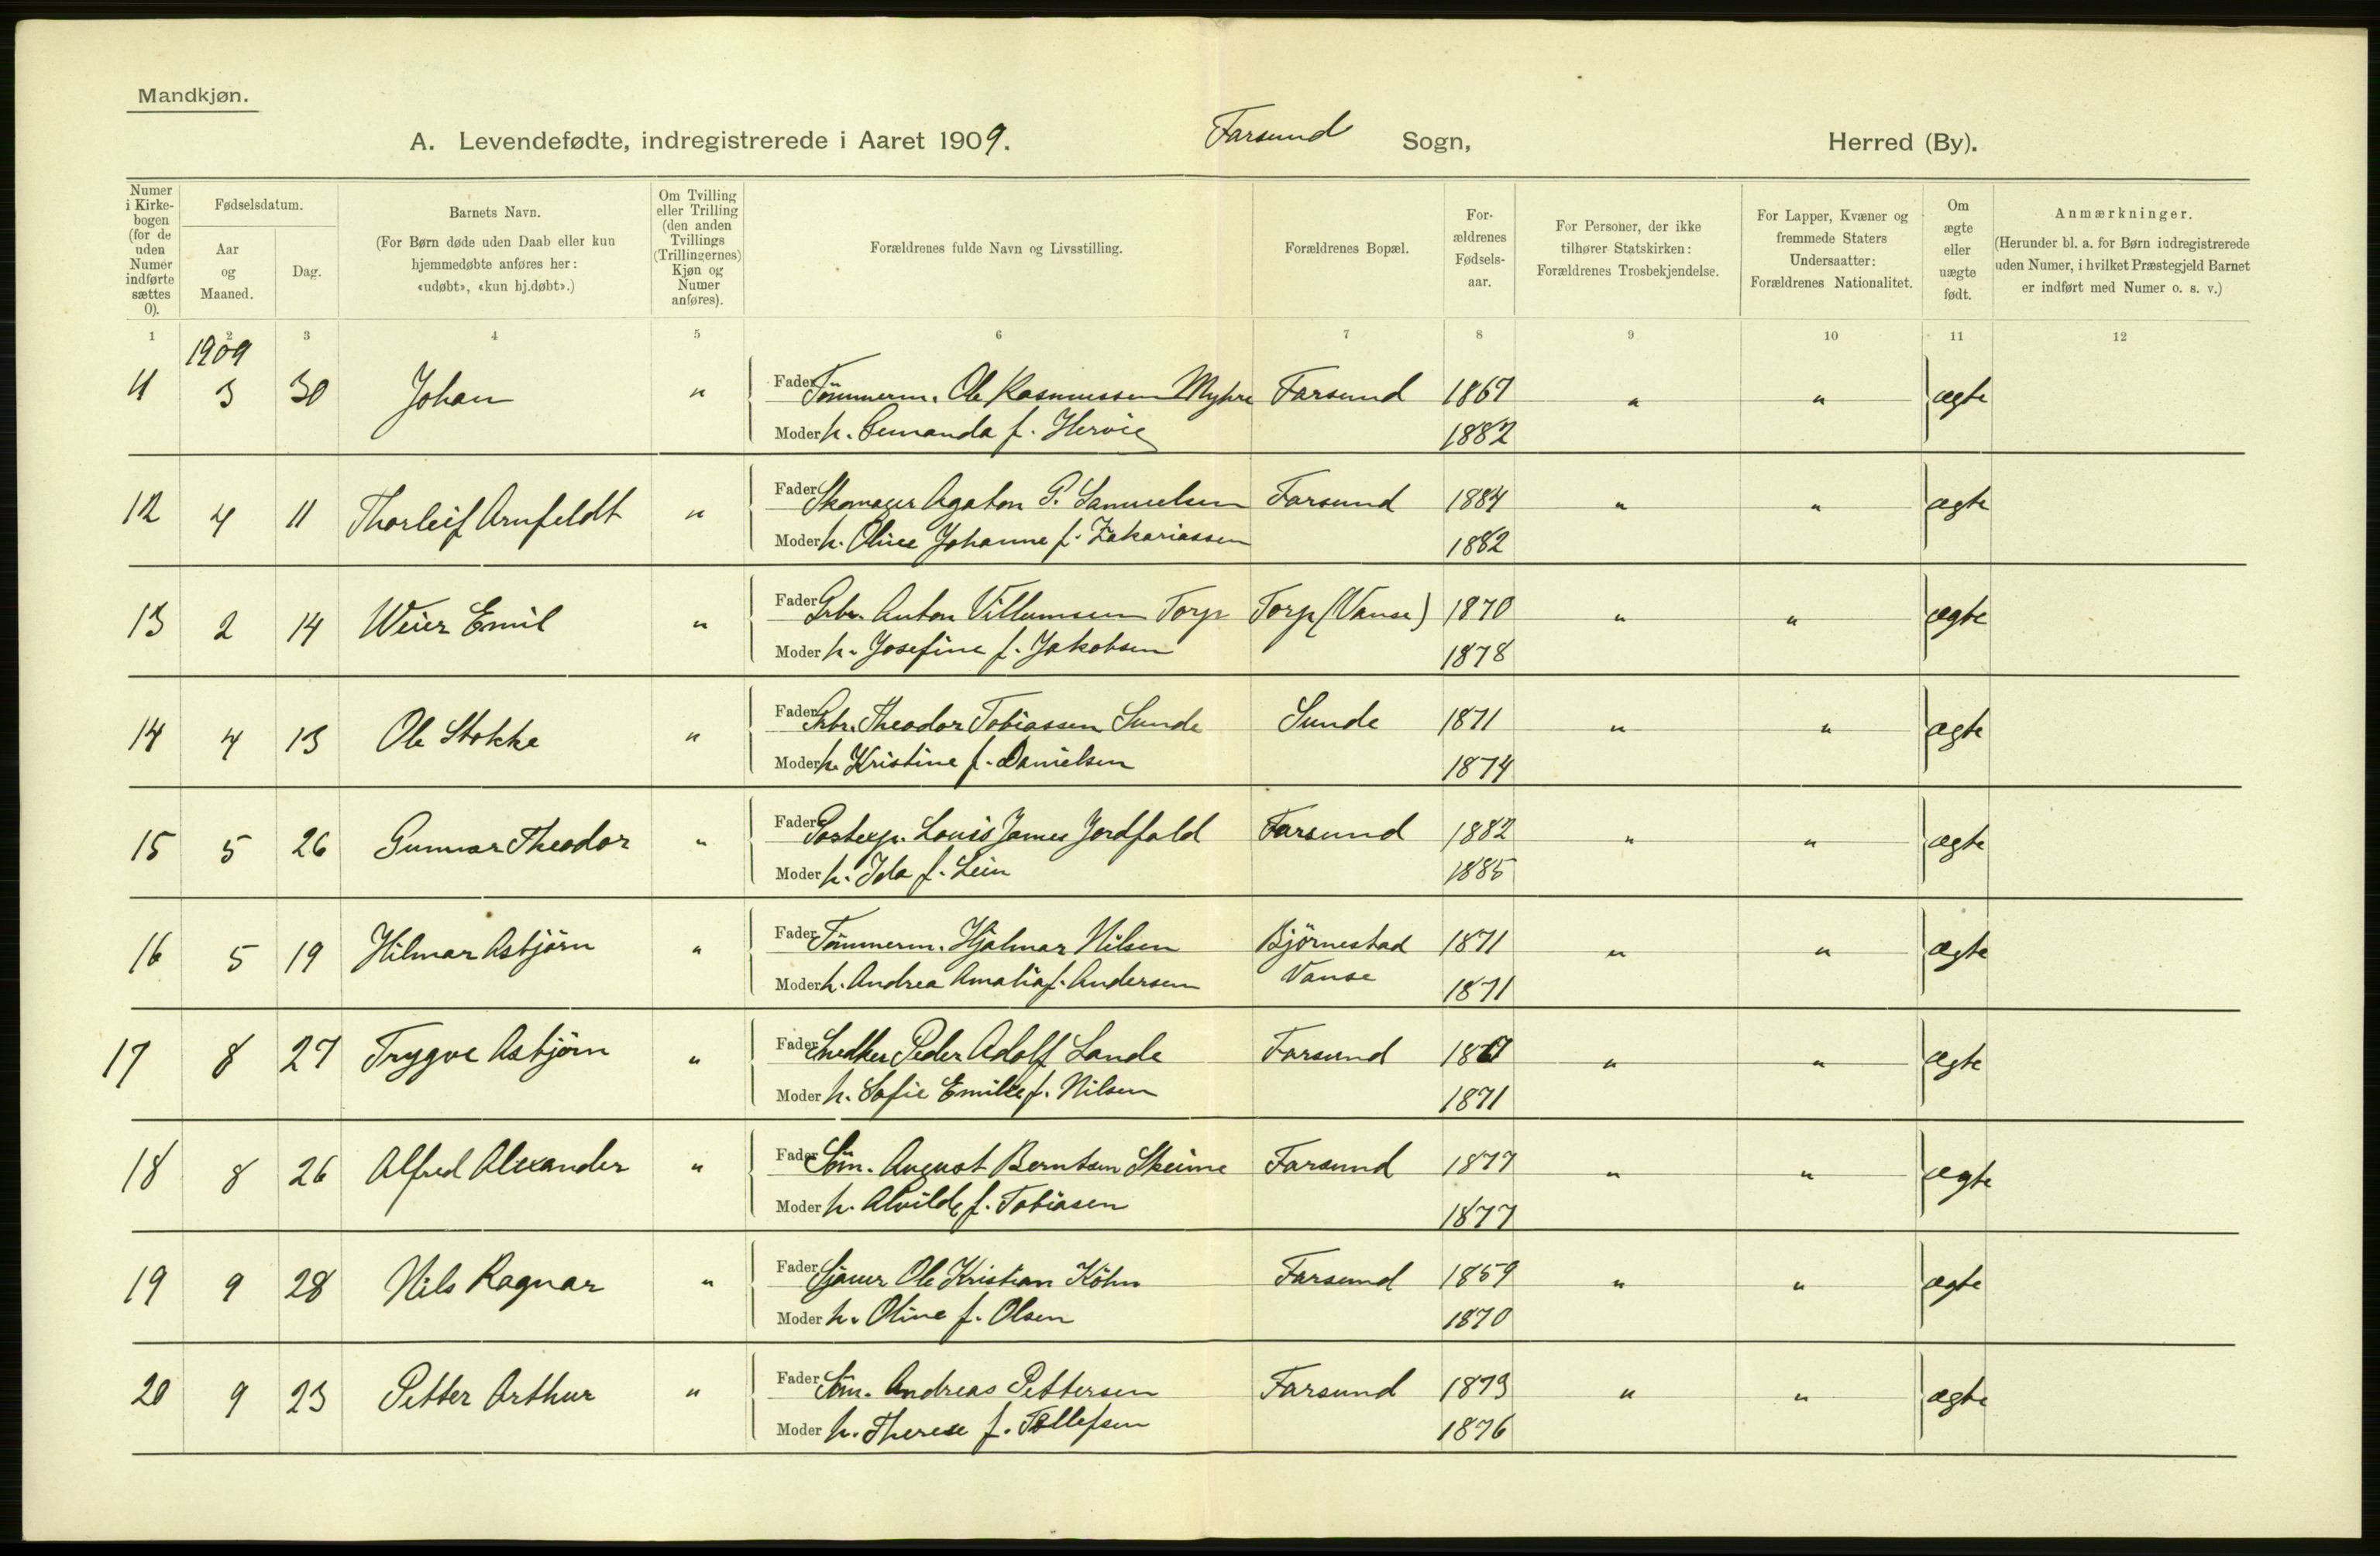 Mandkjøn.
A. Levendefødte, indregistrerede i Aaret 1909. Farsund Sogn, Herred (By).
Numer i Kirkebogen (for de uden Numer indførte sættes 0).
Fødselsdatum.
Aar og Maaned.
Dag.
Barnets Navn.
(For Børn døde uden Daab eller kun hjemmedøbte anføres her: «udøbt», «kun hj.døbt».)
Om Tvilling eller Trilling (den anden Tvillings (Trillingernes) Kjøn og Numer anføres).
Forældrenes fulde Navn og Livsstilling.
Forældrenes Bopæl.
For-ældrenes Fødsels-aar.
For Personer, der ikke tilhører Statskirken: Forældrenes Trosbekjendelse.
For Lapper, Kvæner og fremmede Staters Undersaatter: Forældrenes Nationalitet.
Om ægte eller uægte født.
Anmærkninger.
(Herunder bl. a. for Børn indregistrerede uden Numer, i hvilket Præstegjeld Barnet er indført med Numer o. s. v.)
1 2 3 4 5 6 7 8 9 10 11 12
1909
11 3 30 Johan " Fader Tömmerm. Ole Rasmussen Myhre Farsund 1867 " " ægte
Moder h. f. 1882
12 4 11 Thorleif Arnfeldt " Fader Skomager Agaton P. Samuelsen Farsund 1884 " " ægte
Moder h. Johanne f. Zakariassen 1882
13 2 14 Weier Emil " Fader Grbr. Anton Villumsen Torp Torp (Vanse) 1870 " " ægte
Moder h. Josefine f. Jakobsen 1878
14 4 13 Ole Stokke " Fader Grbr. Theodor Tobiassen Sunde Sunde 1871 " " ægte
Moder h. Kristine f. Danielsen 1874
15 5 26 Gunnar Theodor " Fader Postexp. Louis James Jordfald Farsund 1882 " " ægte
Moder h. Ida f. Lein 1885
16 5 19 Hilmar Asbjörn " Fader Tömmerm. Hjalmar Nilsen Björnestad 1871 " " ægte
Moder h. Andrea Amalia f. Andersen Vanse 1871
17 8 27 Trygve Asbjörn " Fader Snedker Peder Adolf Lande Farsund " " ægte
Moder h. Sofie Emilie f. Nilsen 1871
18 8 26 Alfred Alexander " Fader Söm. August Berntsen Skeime Farsund 1877 " " ægte
Moder h. Alvilde f. Tobiasen 1877
19 9 28 Nils Ragnar " Fader Ole Kristian Köhn Farsund 1859 " " ægte
Moder h. Oline f. Olsen 1870
20 9 23 Petter Arthur " Fader Söm. Andreas Pettersen Farsund 1873 " " ægte
Moder h. Therese f. Tollefsen 1876